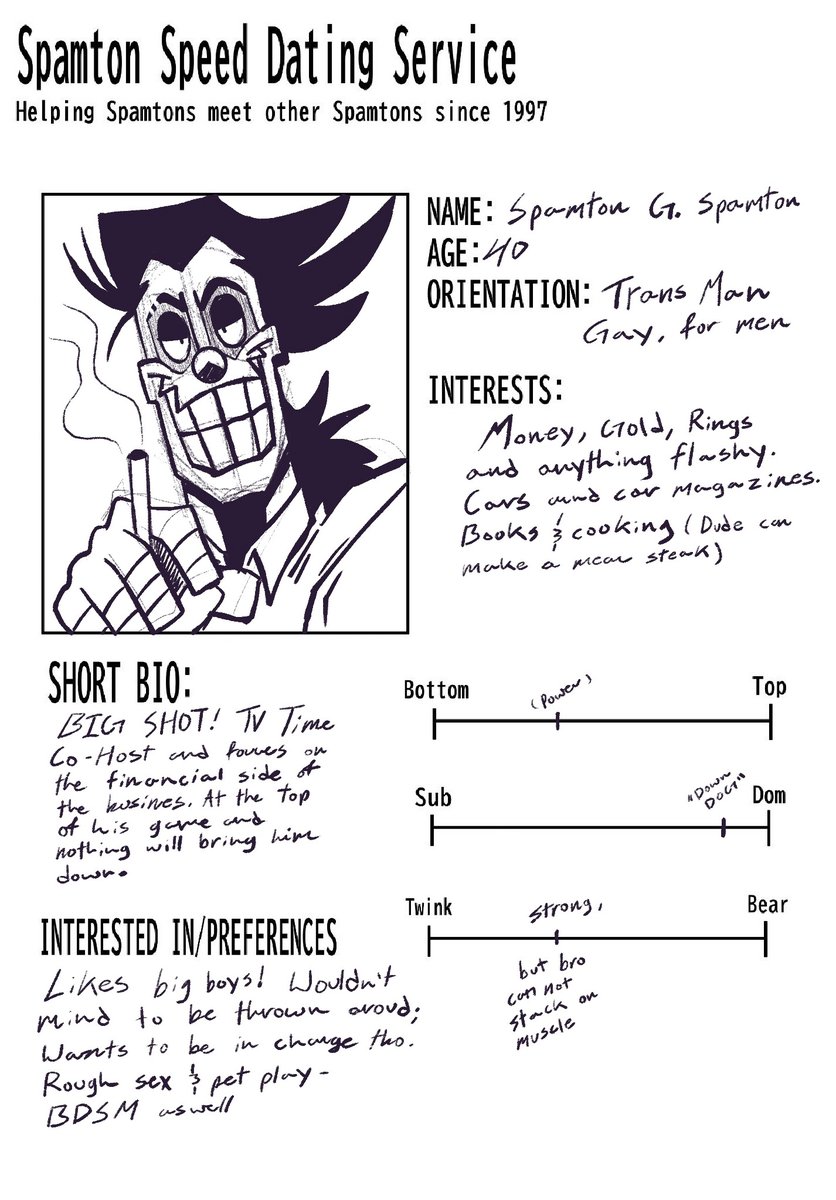 Spamton Speed Dating Service
Helping Spamtons meet other Spamtons since 1997
NAME: Spamton G. Spamton
AGE: 40
ORIENTATION: Trans Man
Gay, for men
INTERESTS:
Money, Gold, Rings
and anything flashy.
Cars and car magazines.
Books & cooking (Dude can
make a mean steak)
SHORT BIO:
BIG SHOT! TV Time
Co-Host and focuses on
the financial side of
the busines. At the top
of his game and
nothing will bring him
down.
Bottom
(Power)
Top
Sub
"Down
DOG"
Dom
Twink
Strong,
Bear
but bro
can not
stack on
muscle
INTERESTED IN/PREFERENCES
Likes big boys! Wouldn't
mind to be thrown aroud;
Wants to be in charge tho.
Rough sex & pet play-
BDSM aswell